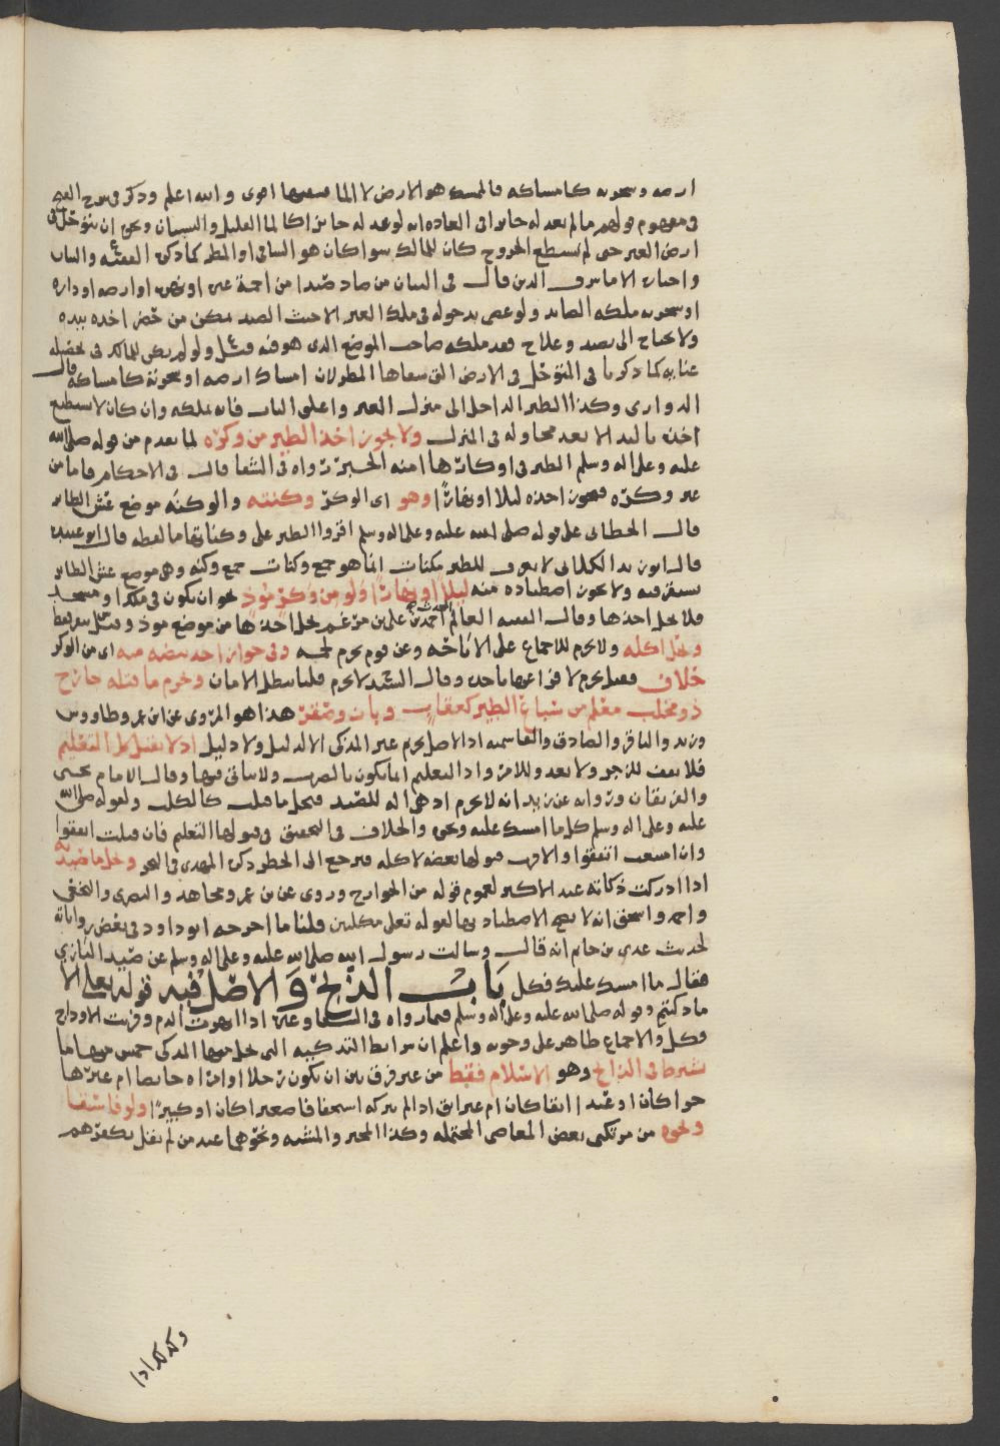 ارضه وسحونه كامساكه فالممسك هو الارض لا الما اقوى والله اعلم وذكر في شرح الفتح
في مفهوم قولهم ما لم يعد له حايزا في العاده انه لو عد له حايزا كالما القليل ونحوه ان يتوحل في
ارض الغير حتى لم يستطع الخروج كان للمالك سوا كان هو الساقي او المطر كما ذكره الفقيه
واختاره الامام شرف الدين قال في البيان من صاد صيدا من اجمة غيره او نهره او ارضه او داره
او سحونه ملكه الصايد ولو عصى بدخوله في ملك الغير الا حيث الصيد يمكن من حضر اخذه بيده
ولا يحتاج الى تصيد وعلاج فقد ملكه صاحب الموضع الذي هو فيه قيل ولو لم يكن للمالك في تحصيله
عنايه كما ذكرنا في المتوحل في الارض التي سقاها المطر لان امساك ارضه او سحونه كامساكه قال
الدواري وكذا الطير الداخل الى منزل الغير واغلق الباب فانه يملكه وان كان لا يستطيع
اخذه باليد الا بعد محاوله في المنزل ولا يجوز اخذ الطير من وكره لما تقدم من قوله صلى الله
عليه وعلى اله وسلم الطير في اوكارها امنه الخبر رواه في الشفا قال في الاحكام فاما من
غير وكره فيجوز اخذه ليلا او نهارا وهو اي الوكر وكنته والوكنه موضع عش الطاير
قال الخطابي على قوله صلى الله عليه وعلى اله وسلم اقروا الطير على وكناتها ما لفظه قال ابو عبيد
قال ابو زيد الكلابي لا يعرف للطير مكنات انما هو جمع وكنات جمع وكنه وهي موضع عش الطاير
يستقر فيه ولا يجوز اصطياده منه ليلا او نهارا ولو من وكر موذ نحو ان يكون في ملك او مسجد
فلا يحل اخذها وقال الفقيه العالم احمد بن علي بن مرغم يحل اخذها من موضع موذ وقيل
ويحل اكله ولا يحرم للاجماع على الاباحه وعن قوم يحرم لحمه وفي جواز اخذ بيضه منه اي من الوكر
خلاف فقيل يحرم لافزاعها باخذه وقال السيد لا يحرم قلنا يبطل الامان وحرم ما قتله جارح
ذو مخلب معلم من سباع الطير كعقاب وباز وصقر هذا هو المروي عن ابن عمر وطاووس
وزيد والباقر والصادق والقاسميه اذ الاصل تحريم غير المذكى الا لدليل ولا دليل اذ لا يقبل التعليم
فلا يقف للزجر ولا يعد وللامر واذ التعليم انما يكون بالضرب ولا يتاتى فيها وقال الامام يحيى
والفريقان وروايه عن زيد انه لا يحرم اذ هي اله للصيد فيحل ما قتلت كالكلب ولقوله صلى الله
عليه وعلى اله وسلم كل ما امسك عليه ونحوه والخلاف في التحقيق في قبولها التعليم فان قبلت اتفقوا
وان امتنعت اتفقوا والاقرب قبولها بعضه لاكله فيرجع الى الحظر ذكره المهدي في البحر وحل ما صيد به
اذا ادركت ذكاته عند الاكثر لعموم قوله من الجوارح وروي عن ابن عمر ومجاهد والبصري والنخعي
واحمد واسحق انه لا يصح الاصطياد بها لقوله تعلى مكلبين قلنا ما اخرجه ابو داود في بعض رواياته
لحديث عدي بن حاتم انه قال وسالت رسول الله صلى الله عليه وعلى اله وسلم عن صيد البازي
فقال ما امسك عليك فكل باب الذبح والاصل فيه قوله تعلى الا
ما ذكيتم وقوله صلى الله عليه وعلى اله وسلم فيما رواه في الشفا وغيره اذا انهرت الدم وفريت الاوداج
فكل والاجماع ظاهر على وجوبه واعلم ان شرايط التذكيه التي يحل معها المذكى خمس منها ما
يشترط في الذابح وهو الاسلام فقط من غير فرق بين ان يكون رجلا او امراه حايضا ام غيرها
حرا كان او عبدا ابقا كان ام غير ابق اذا لم يتركه استخفافا صغيرا كان او كبيرا ولو فاسقا
ونحوه من مرتكبي بعض المعاصي المحتمله وكذا المجبر والمشبه ونحوهما عند من لم يقل بكفرهم
وكذلك اذا